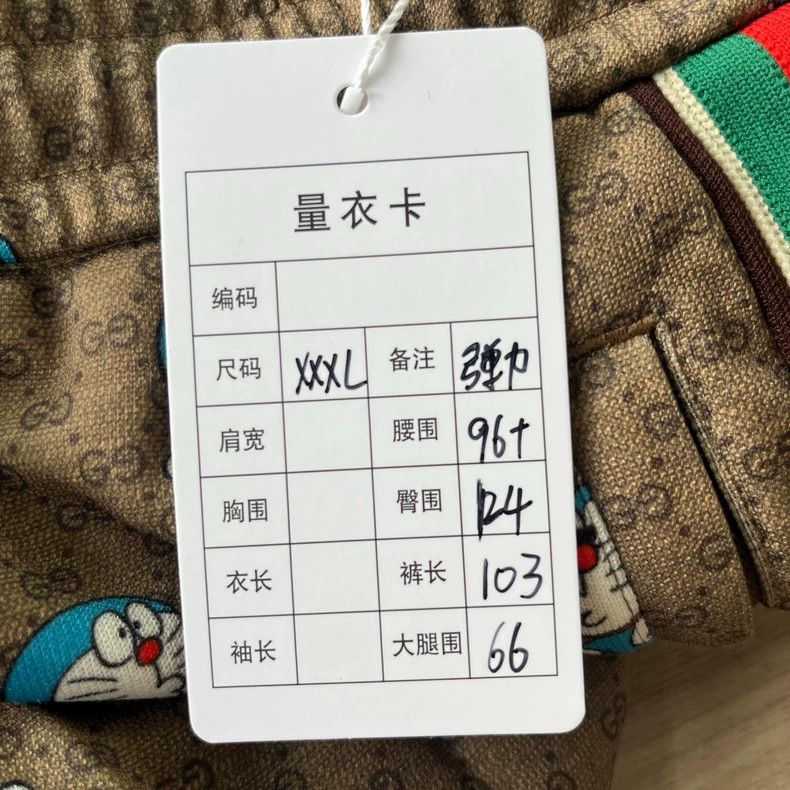 量衣卡
编码
尺码 XXXL 备注 弹力
肩宽 腰围 96+
胸围 臀围 124
衣长 裤长 103
袖长 大腿围 66